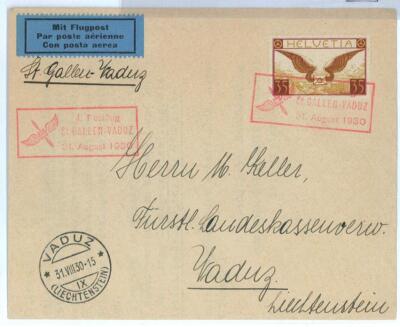 Mit Flugpost
Par poste aérienne
Con posta aerea
St. Gallen-Vaduz
HELVETIA
35 35
ST. GALLEN-VADUZ
31. August 1930
I. Postflug
St. GALLEN-VADUZ
31. August 1930
Herrn M. Keller,
Fürstl. Landeskassenverw.
Vaduz
Liechtenstein
VADUZ
31.VIII.30-15
IX
(LIECHTENSTEIN)